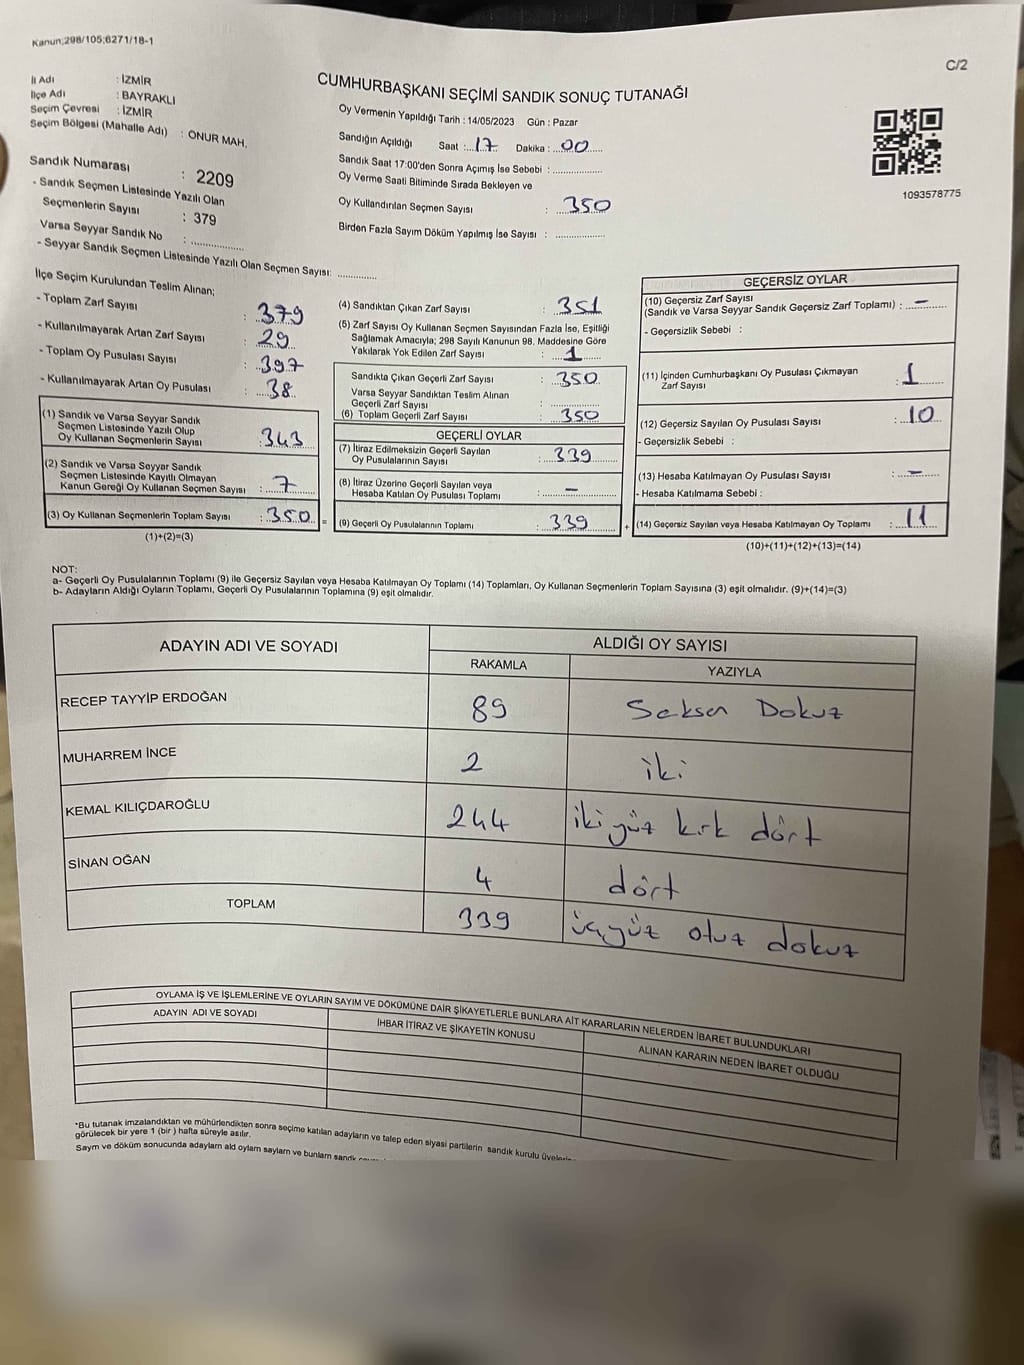 Kanun;298/105;6271/18-1
C/2
İl Adı : İZMİR
İlçe Adı : BAYRAKLI
Seçim Çevresi : İZMİR
Seçim Bölgesi (Mahalle Adı) : ONUR MAH.
Sandık Numarası : 2209
- Sandık Seçmen Listesinde Yazılı Olan
Seçmenlerin Sayısı : 379
Varsa Seyyar Sandık No : ..................
- Seyyar Sandık Seçmen Listesinde Yazılı Olan Seçmen Sayısı: .............
CUMHURBAŞKANI SEÇİMİ SANDIK SONUÇ TUTANAĞI
Oy Vermenin Yapıldığı Tarih : 14/05/2023 Gün : Pazar
Sandığın Açıldığı Saat :..17.. Dakika :..00......
Sandık Saat 17:00'den Sonra Açımış İse Sebebi : ................
Oy Verme Saati Bitiminde Sırada Bekleyen ve
Oy Kullandırılan Seçmen Sayısı : 350
Birden Fazla Sayım Döküm Yapılmış İse Sayısı : ................
1093578775
İlçe Seçim Kurulundan Teslim Alınan;
- Toplam Zarf Sayısı : 379
- Kullanılmayarak Artan Zarf Sayısı : 29
- Toplam Oy Pusulası Sayısı : 397
- Kullanılmayarak Artan Oy Pusulası : 38
(1) Sandık ve Varsa Seyyar Sandık
Seçmen Listesinde Yazılı Olup
Oy Kullanan Seçmenlerin Sayısı : 343
(2) Sandık ve Varsa Seyyar Sandık
Seçmen Listesinde Kayıtlı Olmayan
Kanun Gereği Oy Kullanan Seçmen Sayısı : 7
(3) Oy Kullanan Seçmenlerin Toplam Sayısı : 350 =
(1)+(2)=(3)
(4) Sandıktan Çıkan Zarf Sayısı : 351
(5) Zarf Sayısı Oy Kullanan Seçmen Sayısından Fazla İse, Eşitliği
Sağlamak Amacıyla; 298 Sayılı Kanunun 98. Maddesine Göre
Yakılarak Yok Edilen Zarf Sayısı : 1
Sandıkta Çıkan Geçerli Zarf Sayısı : 350
Varsa Seyyar Sandıktan Teslim Alınan
Geçerli Zarf Sayısı : ................
(6) Toplam Geçerli Zarf Sayısı : 350
GEÇERLİ OYLAR
(7) İtiraz Edilmeksizin Geçerli Sayılan
Oy Pusulalarının Sayısı : 339
(8) İtiraz Üzerine Geçerli Sayılan veya
Hesaba Katılan Oy Pusulası Toplamı : –
(9) Geçerli Oy Pusulalarının Toplamı : 339 +
GEÇERSİZ OYLAR
(10) Geçersiz Zarf Sayısı
(Sandık ve Varsa Seyyar Sandık Geçersiz Zarf Toplamı) : –
- Geçersizlik Sebebi :
(11) İçinden Cumhurbaşkanı Oy Pusulası Çıkmayan
Zarf Sayısı : 1
(12) Geçersiz Sayılan Oy Pusulası Sayısı : 10
- Geçersizlik Sebebi :
(13) Hesaba Katılmayan Oy Pusulası Sayısı : –
- Hesaba Katılmama Sebebi :
(14) Geçersiz Sayılan veya Hesaba Katılmayan Oy Toplamı : 11
(10)+(11)+(12)+(13)=(14)
NOT:
a- Geçerli Oy Pusulalarının Toplamı (9) ile Geçersiz Sayılan veya Hesaba Katılmayan Oy Toplamı (14) Toplamları, Oy Kullanan Seçmenlerin Toplam Sayısına (3) eşit olmalıdır. (9)+(14)=(3)
b- Adayların Aldığı Oyların Toplamı, Geçerli Oy Pusulalarının Toplamına (9) eşit olmalıdır.
ADAYIN ADI VE SOYADI ALDIĞI OY SAYISI
RAKAMLA YAZIYLA
RECEP TAYYİP ERDOĞAN 89 Seksen Dokuz
MUHARREM İNCE 2 iki
KEMAL KILIÇDAROĞLU 244 iki yüz kırk dört
SİNAN OĞAN 4 dört
TOPLAM 339 üçyüz otuz dokuz
OYLAMA İŞ VE İŞLEMLERİNE VE OYLARIN SAYIM VE DÖKÜMÜNE DAİR ŞİKAYETLERLE BUNLARA AİT KARARLARIN NELERDEN İBARET BULUNDUKLARI
ADAYIN ADI VE SOYADI İHBAR İTİRAZ VE ŞİKAYETİN KONUSU ALINAN KARARIN NEDEN İBARET OLDUĞU
*Bu tutanak imzalandıktan ve mühürlendikten sonra seçime katılan adayların ve talep eden siyasi partilerin sandık kurulu
görülecek bir yere 1 (bir ) hafta süreyle asılır.
Sayım ve döküm sonucunda adayların ald oyların sayları ve bunların